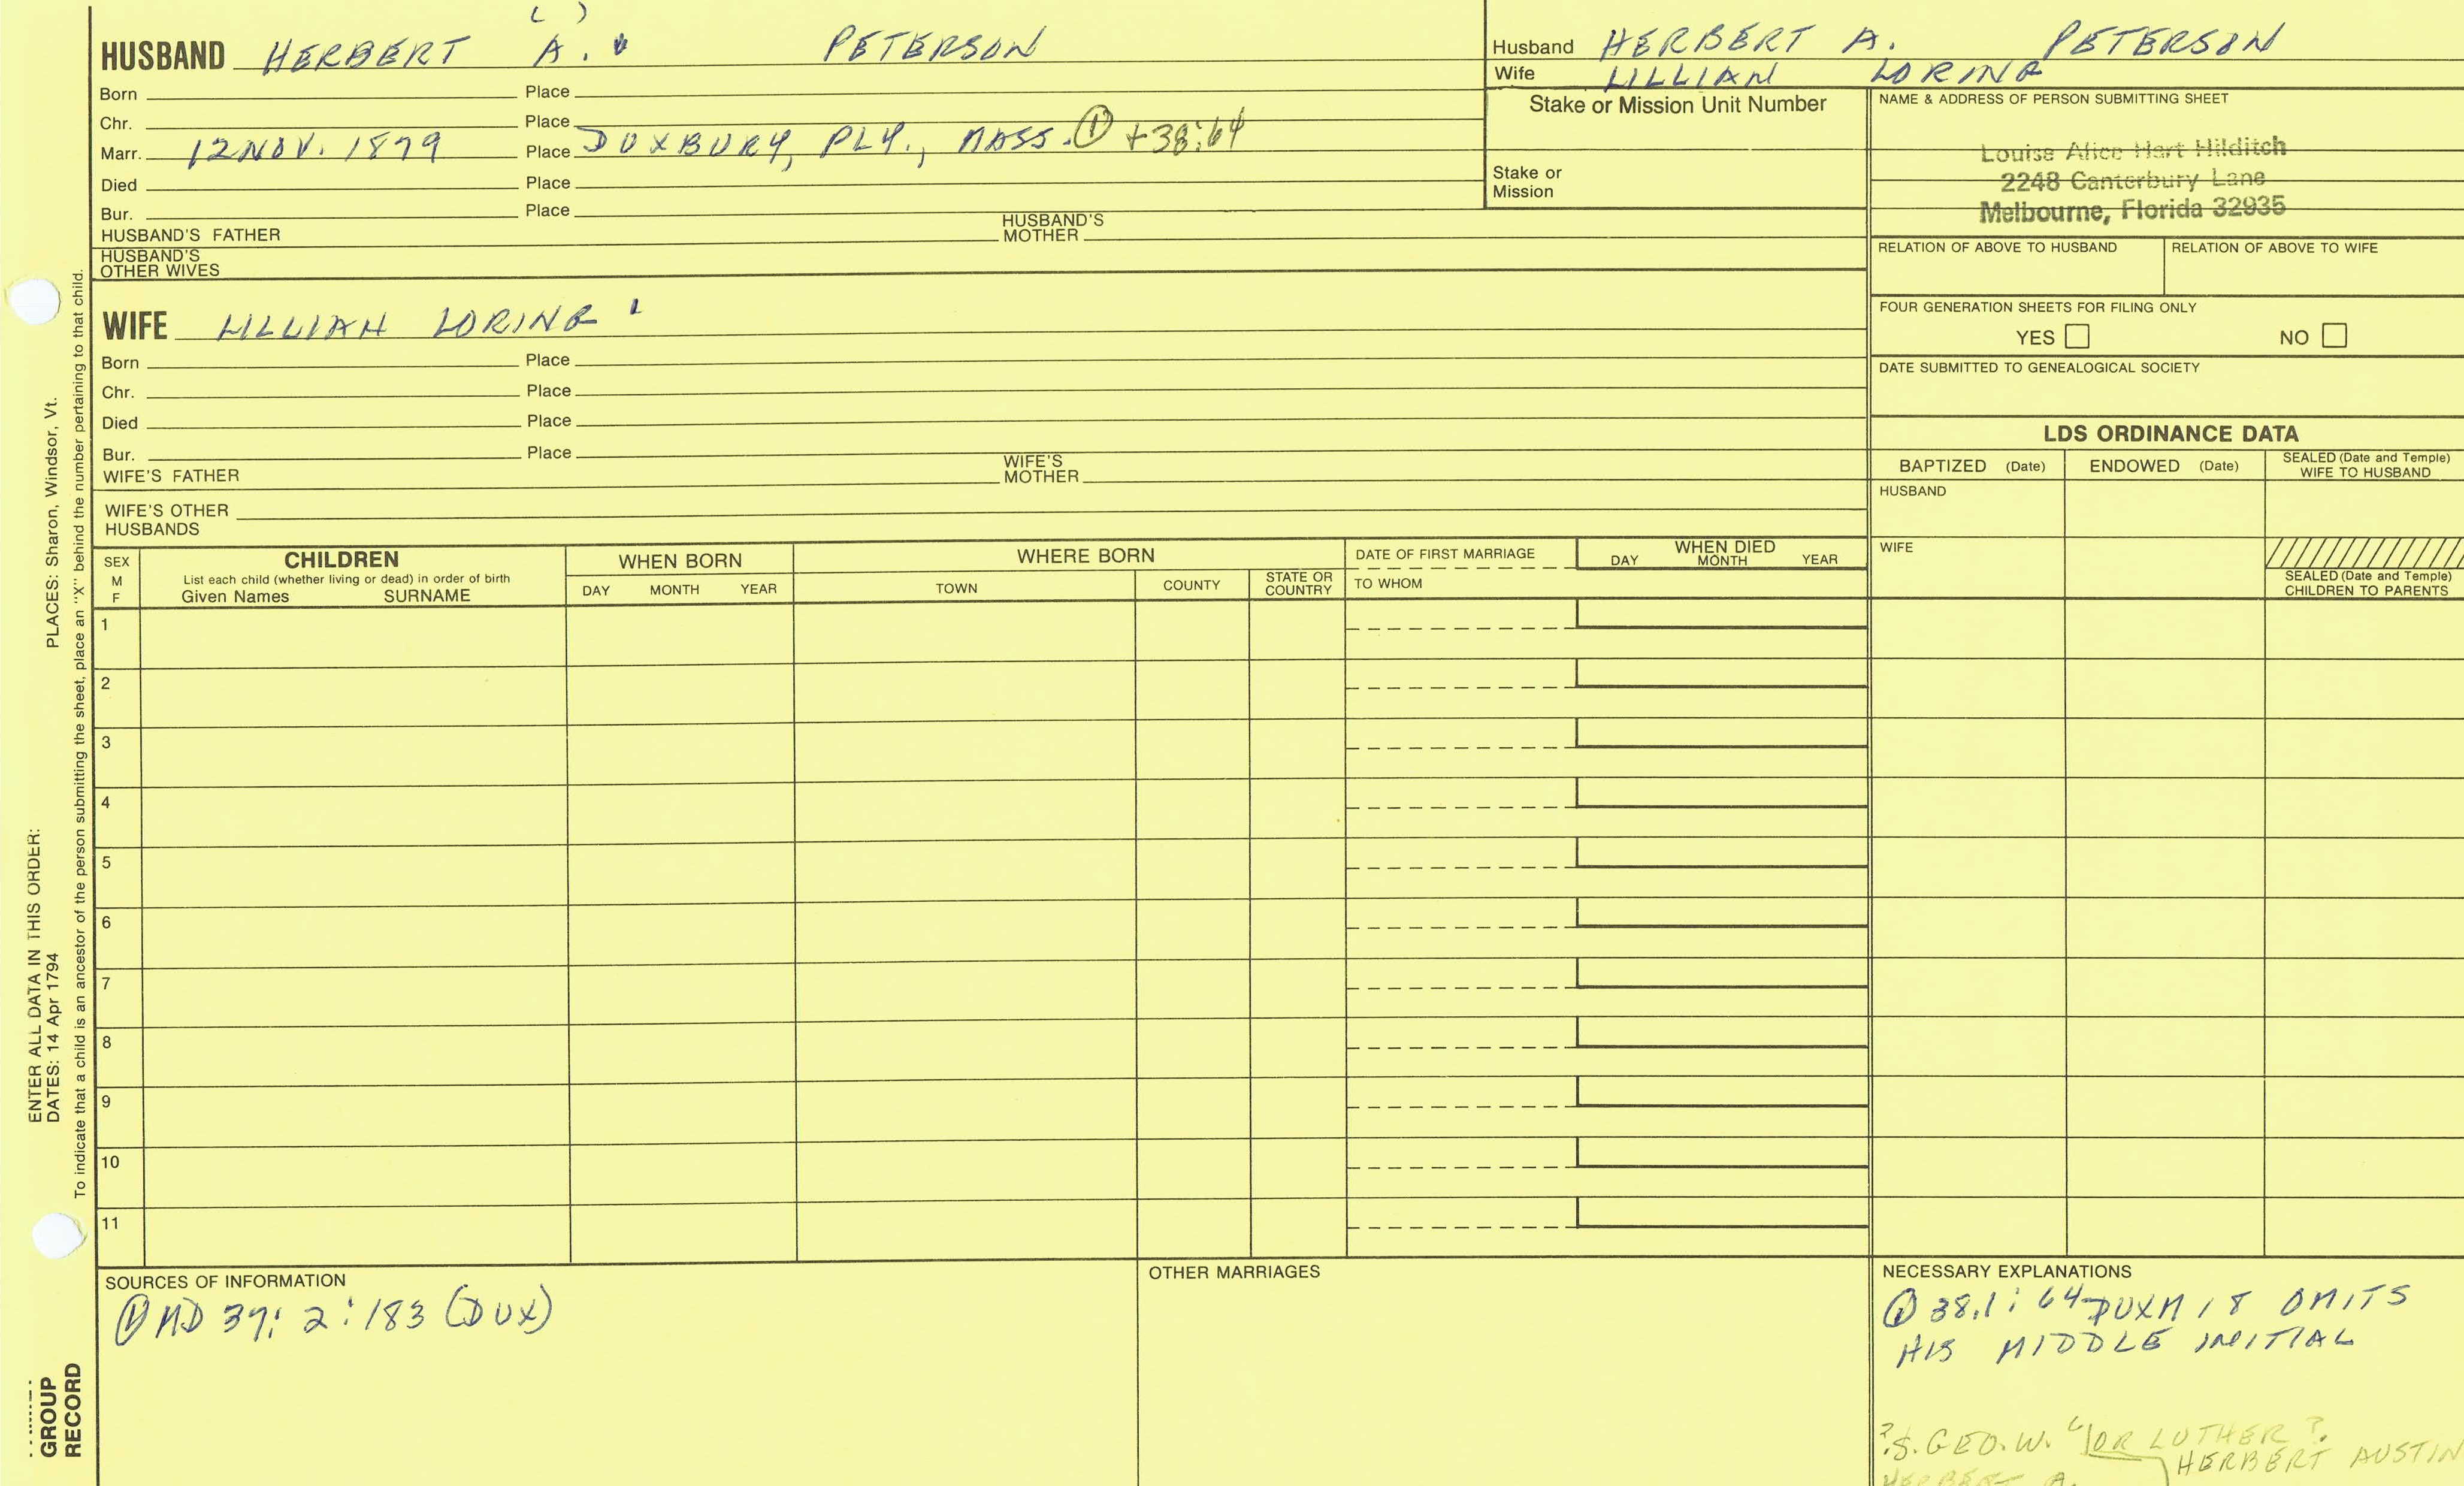 HUSBAND HERBERT A. PETERSON
Born Place
Chr. Place
Marr. 12 NOV. 1879 Place DUXBURY, PLY., MASS. ① +38:64
Died Place
Bur. Place
HUSBAND'S FATHER HUSBAND'S MOTHER
HUSBAND'S OTHER WIVES
WIFE LILLIAN LORING
Born Place
Chr. Place
Died Place
Bur. Place
WIFE'S FATHER WIFE'S MOTHER
WIFE'S OTHER HUSBANDS
Husband HERBERT A. PETERSON
Wife LILLIAN LORING
Stake or Mission Unit Number
Stake or Mission
NAME & ADDRESS OF PERSON SUBMITTING SHEET
Louise Alice Hart Hilditch
2248 Canterbury Lane
Melbourne, Florida 32935
RELATION OF ABOVE TO HUSBAND RELATION OF ABOVE TO WIFE
FOUR GENERATION SHEETS FOR FILING ONLY
YES NO
DATE SUBMITTED TO GENEALOGICAL SOCIETY
LDS ORDINANCE DATA
BAPTIZED (Date) ENDOWED (Date) SEALED (Date and Temple) WIFE TO HUSBAND
HUSBAND
WIFE
SEALED (Date and Temple) CHILDREN TO PARENTS
SEX M F
CHILDREN
List each child (whether living or dead) in order of birth
Given Names SURNAME
WHEN BORN
DAY MONTH YEAR
WHERE BORN
TOWN COUNTY STATE OR COUNTRY
DATE OF FIRST MARRIAGE
TO WHOM
WHEN DIED
DAY MONTH YEAR
1
2
3
4
5
6
7
8
9
10
11
SOURCES OF INFORMATION
① MD 37: 2:183 (DUX)
OTHER MARRIAGES
NECESSARY EXPLANATIONS
① 38.1:64 OMITS
HIS MIDDLE INITIAL
?S. GEO. W. OR LUTHER?
HERBERT AUSTIN
HERBERT A.
PLACES: Sharon, Windsor, Vt.
ENTER ALL DATA IN THIS ORDER:
DATES: 14 Apr 1794
To indicate that a child is an ancestor of the person submitting the sheet, place an "X" behind the number pertaining to that child.
GROUP
RECORD